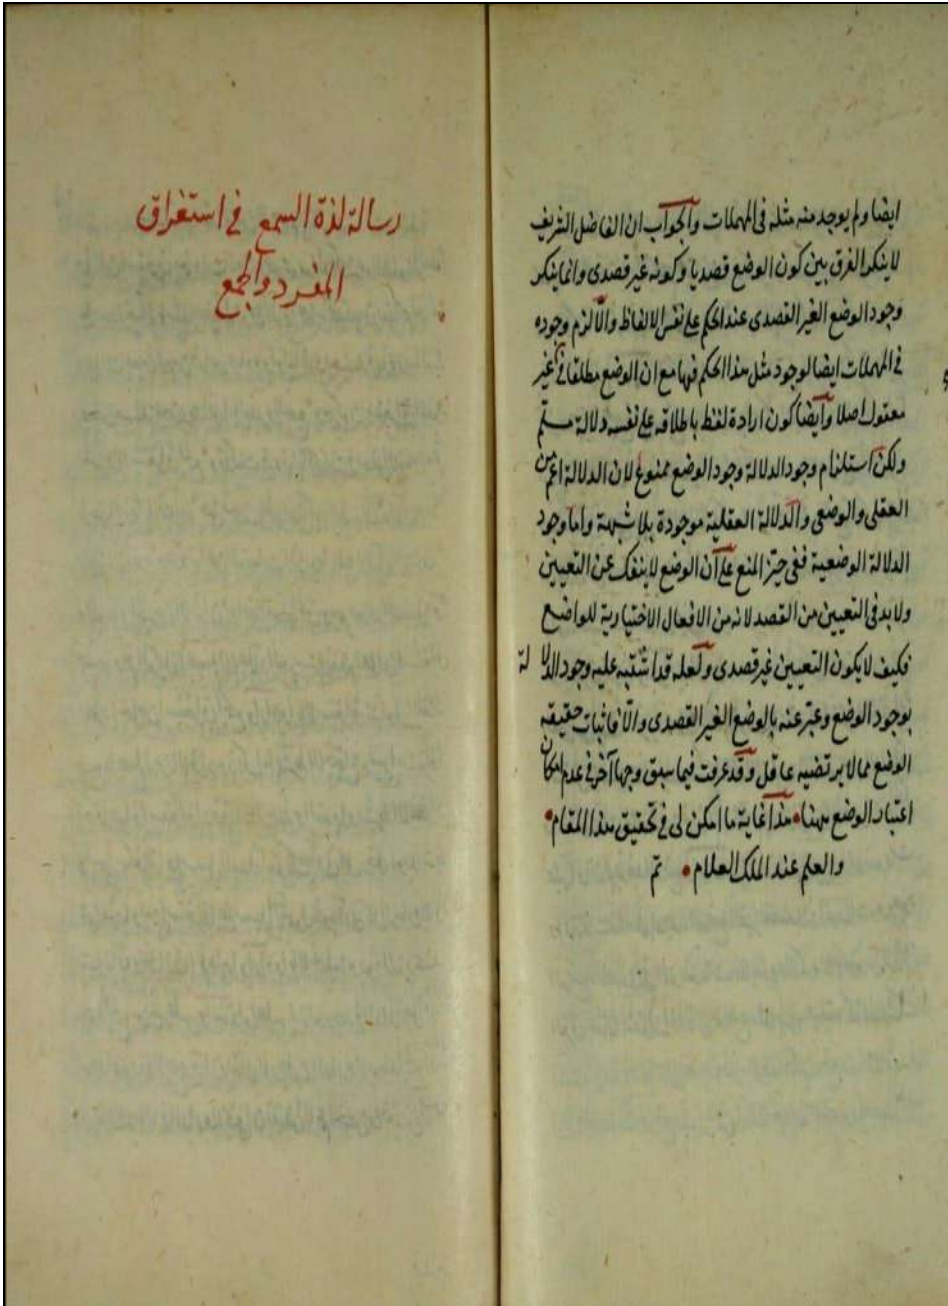 ايضا ولم يوجد منه مثله في المهملات والجواب ان الفاضل الشريف
لا ينكر الفرق بين كون الوضع قصديا وكونه غير قصدى وانما ينكر
وجود الوضع الغير القصدى عند الحكم على نفس الالفاظ والا لزم وجوده
في المهملات ايضا لوجود مثل هذا الحكم فيها مع ان الوضع مطلقا فيها غير
معقول اصلا وايضا كون ارادة لفظ باطلاقه على نفسه دلالة مسلم
ولكن استلزام وجود الدلالة وجود الوضع ممنوع لان الدلالة اعم من
العقلى والوضعى والدلالة العقلية موجودة بلا شبهة واما وجود
الدلالة الوضعية ففى حيز المنع على ان الوضع لا ينفك عن التعيين
ولا بد فى التعيين من القصد لانه من الافعال الاختيارية للواضع
فكيف لا يكون التعيين غير قصدى ولعله قد اشتبه عليه وجود الدلالة
بوجود الوضع وعبر عنه بالوضع الغير القصدى والا فاثبات حقيقة
الوضع مما لا يرتضيه عاقل وقد عرفت فيما سبق وجها آخر فى عدم امكان
اعتبار الوضع ههنا هذا غاية ما امكن لى فى تحقيق هذا المقام
والعلم عند الملك العلام تم
رسالة لذة السمع في استغراق
المفرد والجمع